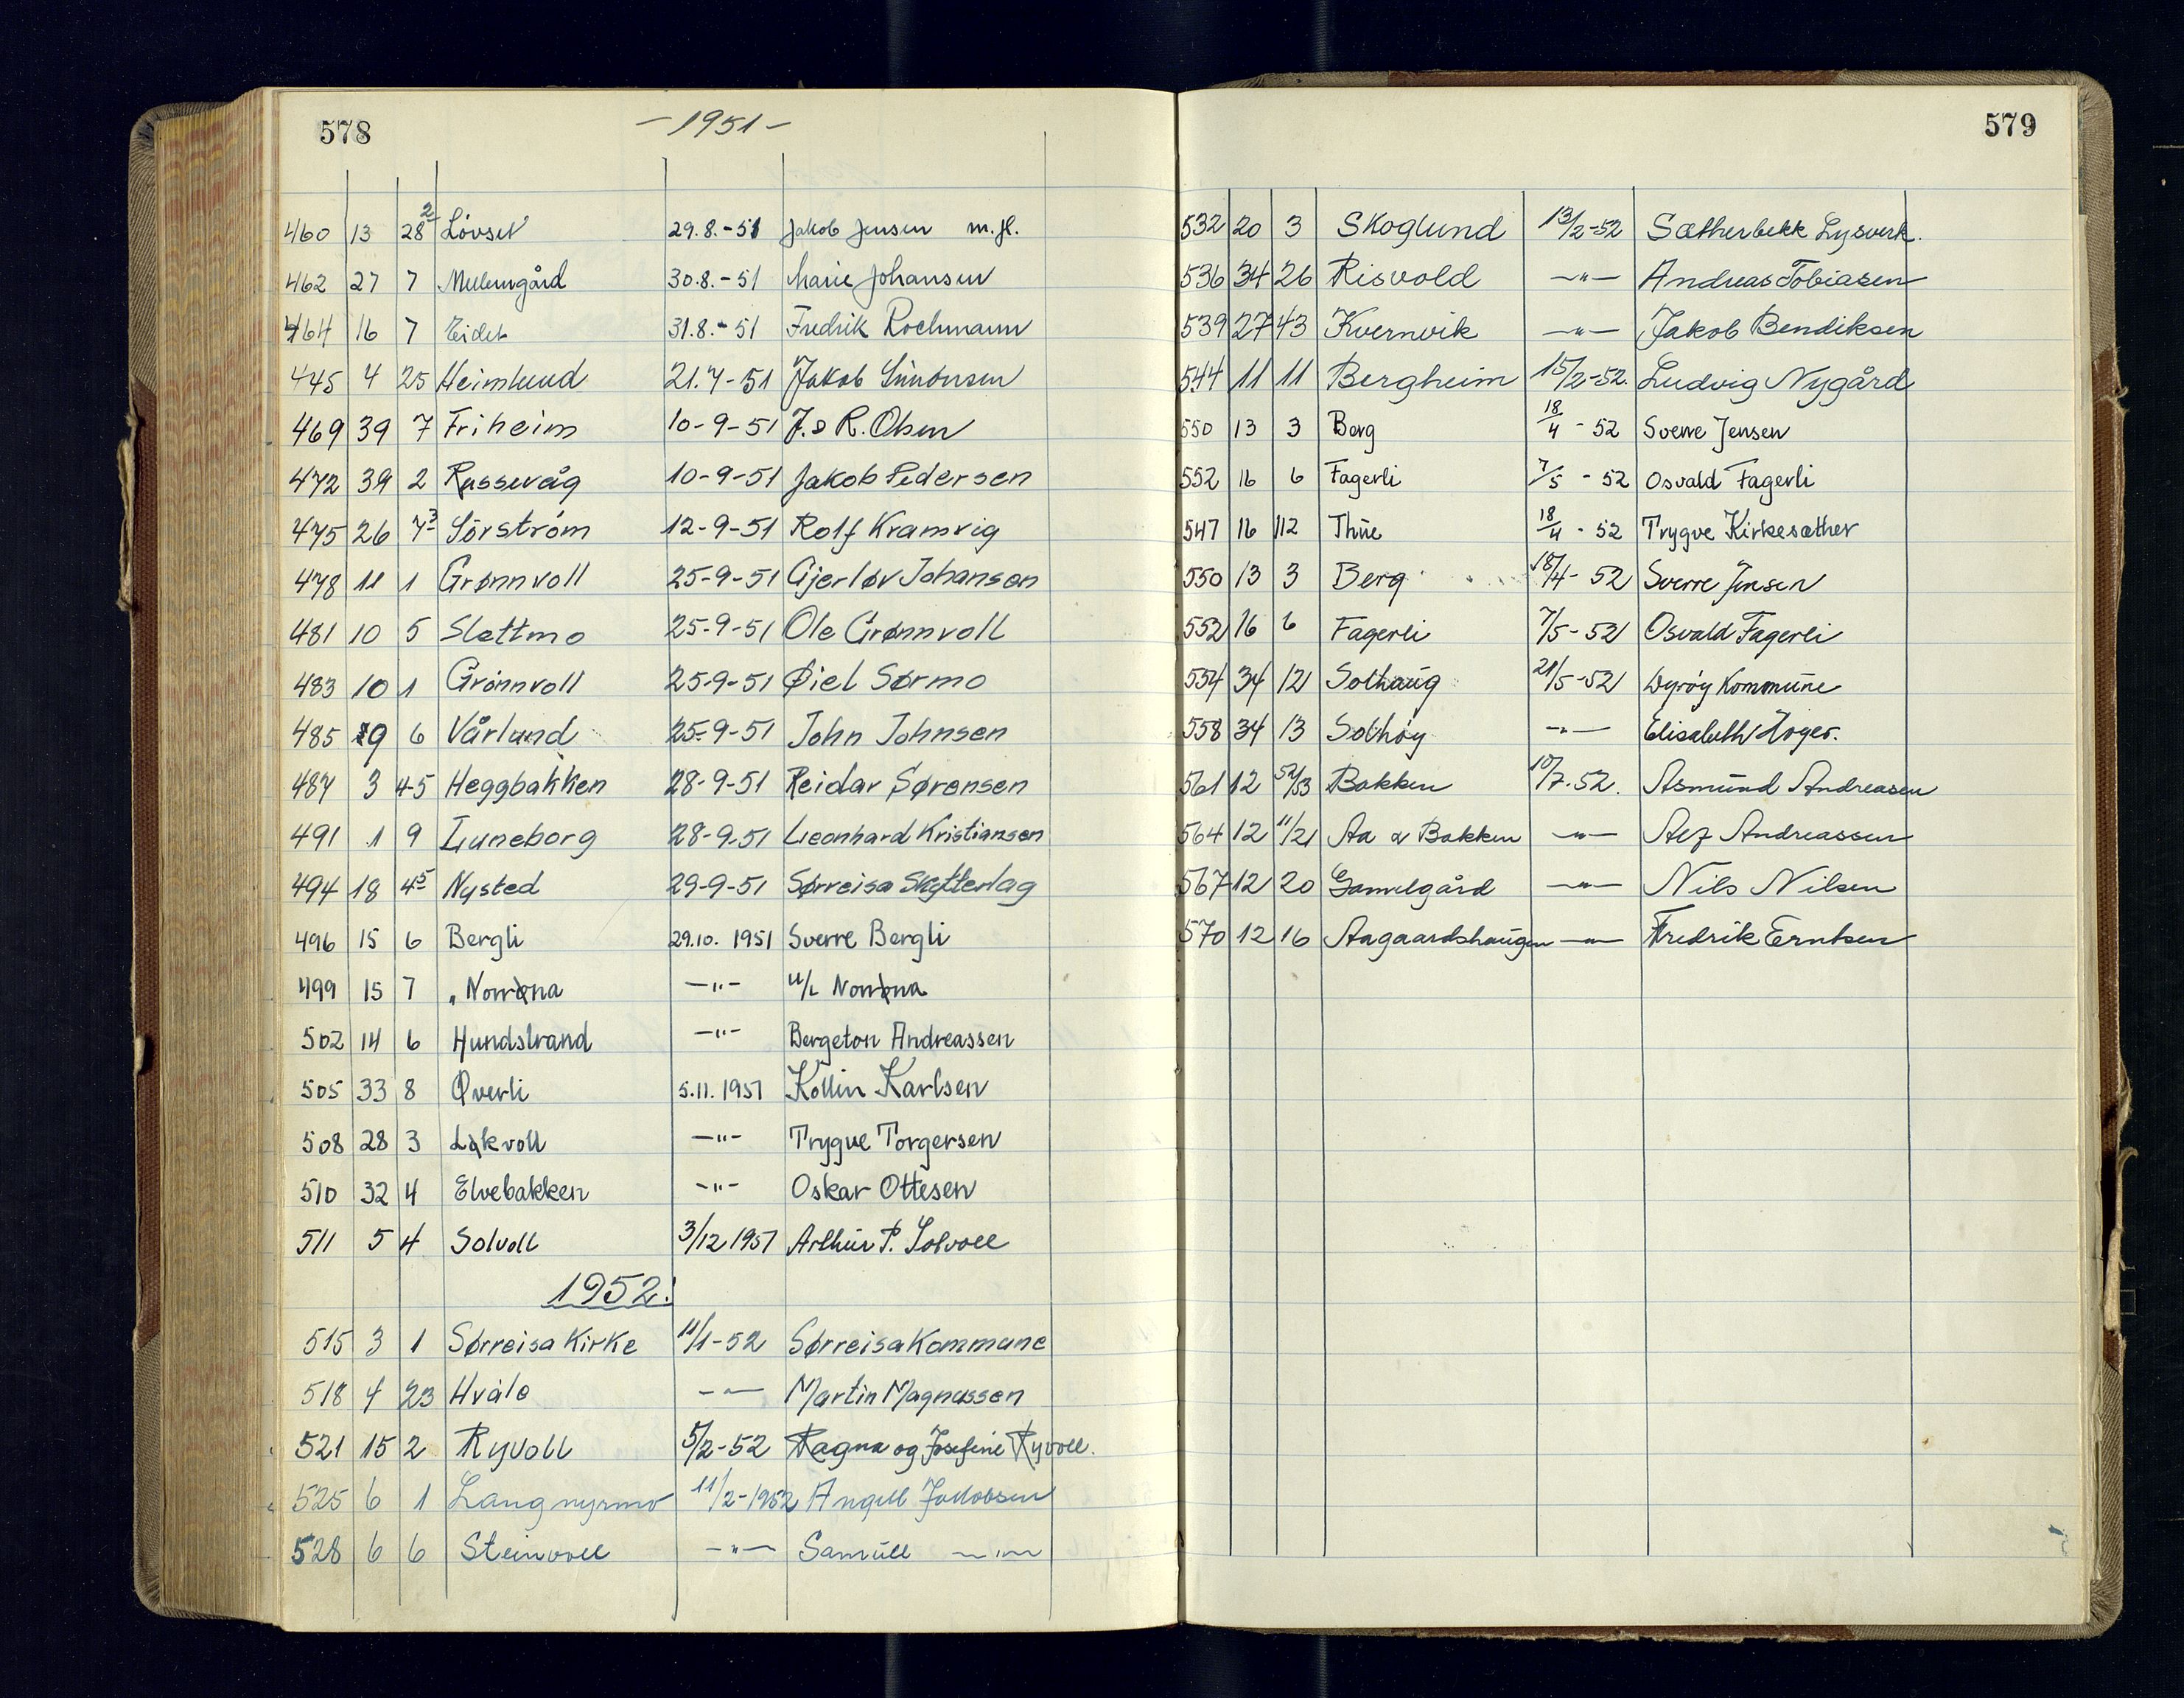 578
- 1951 -
460 13 28 2 Lövset 29.8.-51 Jakob Jensen m.fl.
462 27 7 Mellemgård 30.8.-51 Marie Johansen
464 16 7 Eidet 31.8.-51 Fredrik Rochmann
445 4 25 Heimlund 21.7-51 Jakob Simonsen
469 39 7 Friheim 10-9-51 J. & R. Olsen
472 39 2 Russevåg 10-9-51 Jakob Pedersen
475 26 7 3 Sörström 12-9-51 Rolf Kramvig
478 11 1 Grønnvoll 25-9-51 Gjerløv Johansen
481 10 5 Slettmo 25-9-51 Ole Grønnvoll
483 10 1 Grönnvoll 25-9-51 Øiel Sørmo
485 9 6 Vårlund 25-9-51 John Johnsen
487 3 45 Heggbakken 28-9-51 Reidar Sørensen
491 1 9 Luneborg 28-9-51 Leonhard Kristiansen
494 18 4 5 Nysted 29-9-51 Sørreisa Skytterlag
496 15 6 Bergli 29.10. 1951 Sverre Bergli
499 15 7 " Norröna —"— u/l Norröna
502 14 6 Hundstrand —"— Bergeton Andreassen
505 33 8 Øverli 5.11. 1951 Kollin Karlsen
508 28 3 Lakvoll —"— Trygve Torgersen
510 32 4 Elvebakken —"— Oskar Ottesen
511 5 4 Solvoll 3/12 1951 Arthur P. Solvoll
1952:
515 3 1 Sørreisa Kirke 11/1-52 Sørreisa Kommune
518 4 23 Hvile —"— Martin Magnussen
521 15 2 Ryvoll 5/2-52 Ragna og Josefine Ryvoll.
525 6 1 Langmyrmo 11/2-1952 Angell Jakobsen
528 6 6 Steinvoll —"— Samuell —"—
579
532 20 3 Skoglund 13/2-52 Sætherbekk Lysverk.
536 34 26 Risvold —"— Andreas Tobiasen
539 27 43 Kvernvik —"— Jakob Bendiksen
544 11 11 Bergheim 15/2-52. Ludvig Nygård
550 13 3 Berg 18/4 - 52 Sverre Jensen
552 16 6 Fagerli 7/5 - 52 Osvald Fagerli
547 16 112 Thue 18/4 - 52 Trygve Kirkesæther
550 13 3 Berg 18/4- 52 Sverre Jensen
552 16 6 Fagerli 7/5- 52 Osvald Fagerli
554 34 12 Solhaug 21/5-52 Dyrøy Kommune
558 34 13 Solhöy —"— Elisabeth
561 12 52/53 Bakken 10/7.52. Asmund Andreasen
564 12 11/21 Aa & Bakken —"— Alf Andreassen
567 12 20 Gamelgård —"— Nils Nilsen
570 12 16 Aagaardshaugen —"— Fredrik Erntsen